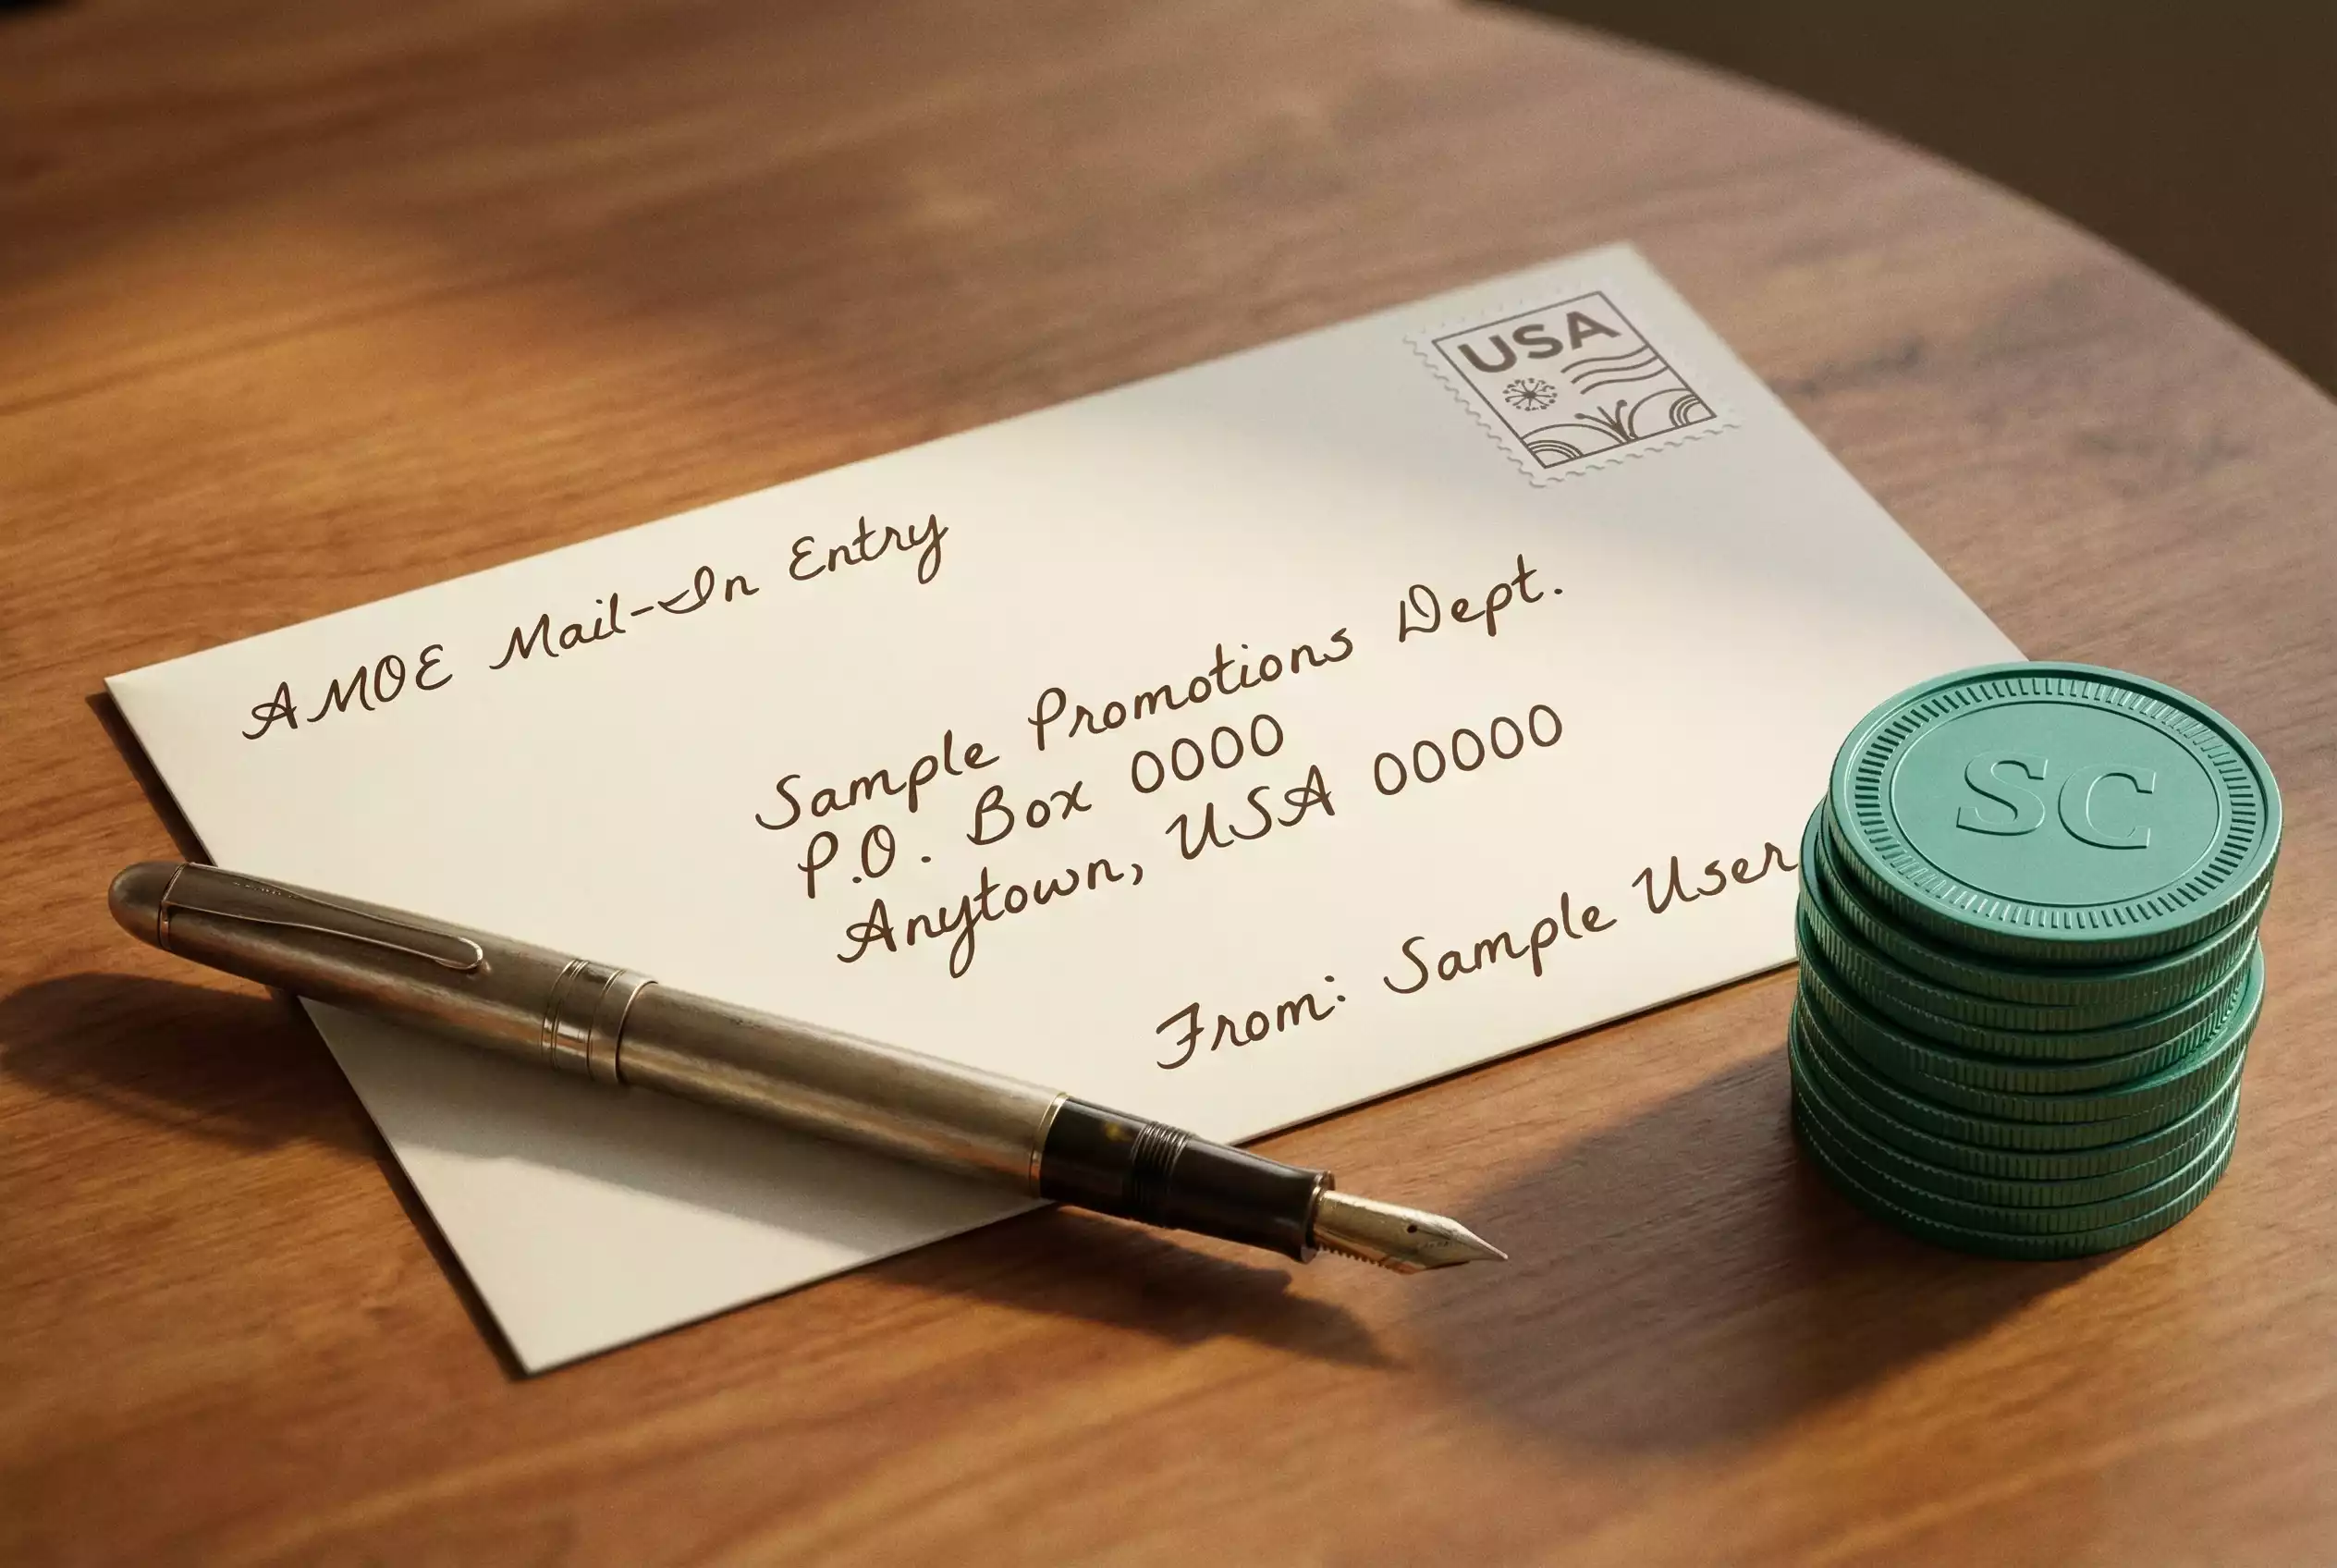 USA
AMOE Mail-In Entry
Sample Promotions Dept.
P.O. Box 0000
Anytown, USA 00000
From: Sample User
SC